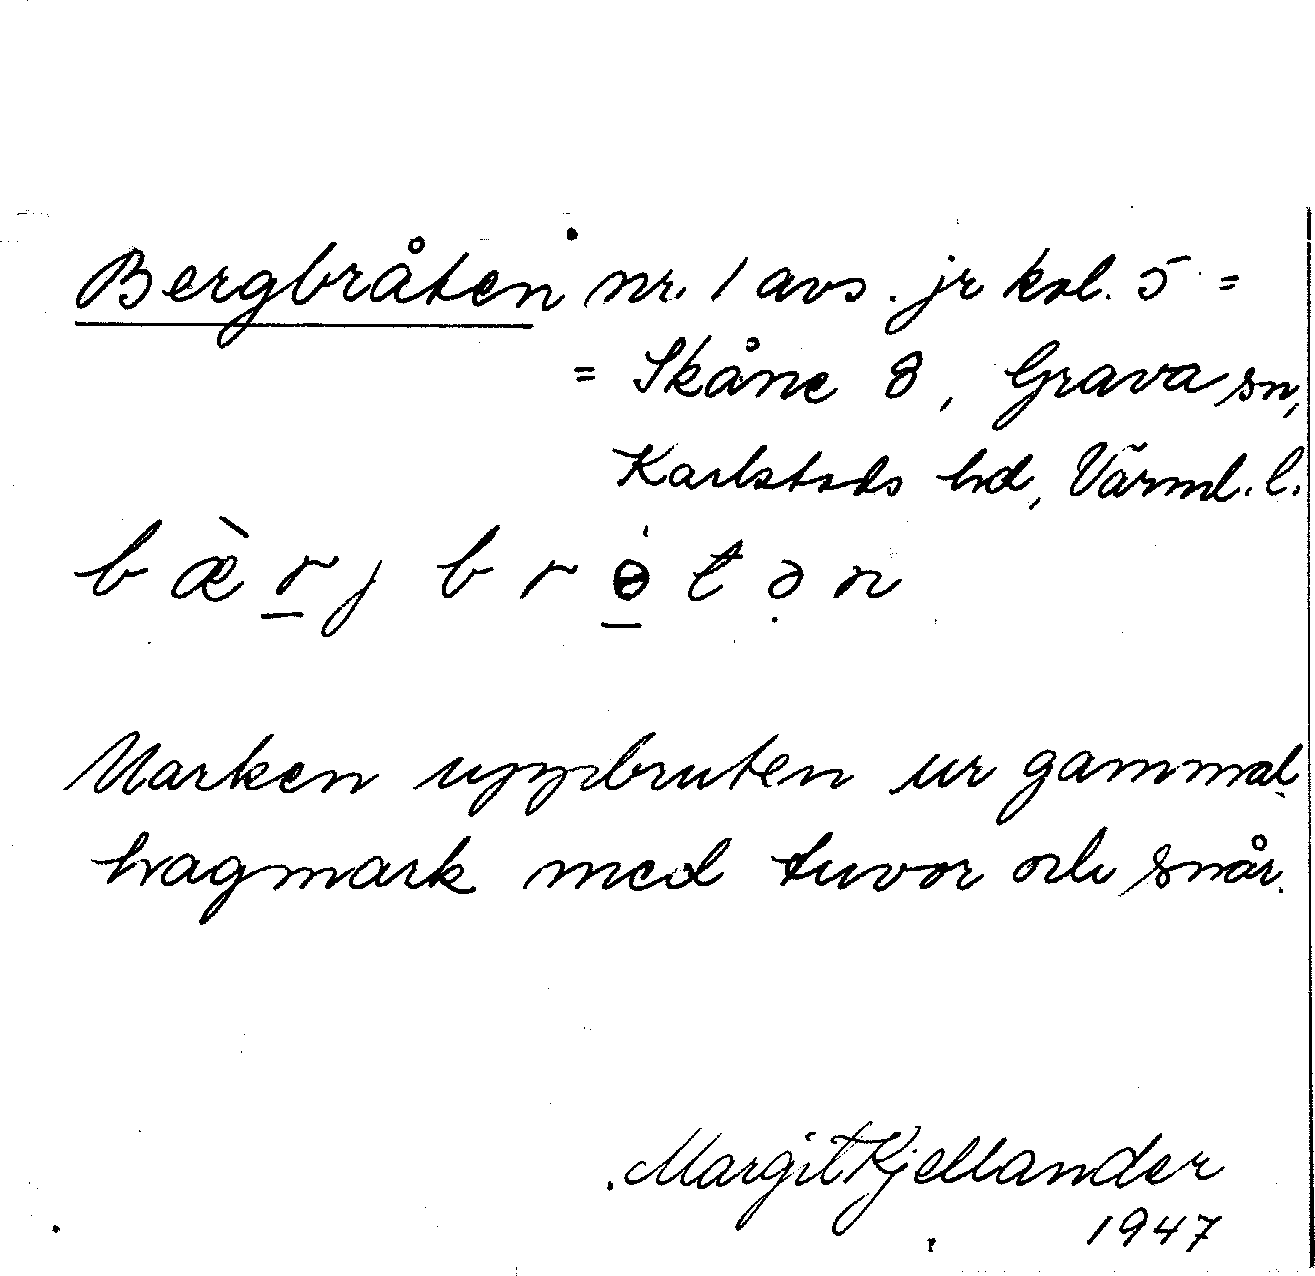 Bergbråten nr. 1 avs. jr kol. 5 =
= Skåne 8, Grava sn,
Karlstads hd, Värml. l.
bæ̀r̠jbrɵ̠tən
Marken uppbruten ur gammal
hagmark med tuvor och snår.
Margit Kjellander
1947